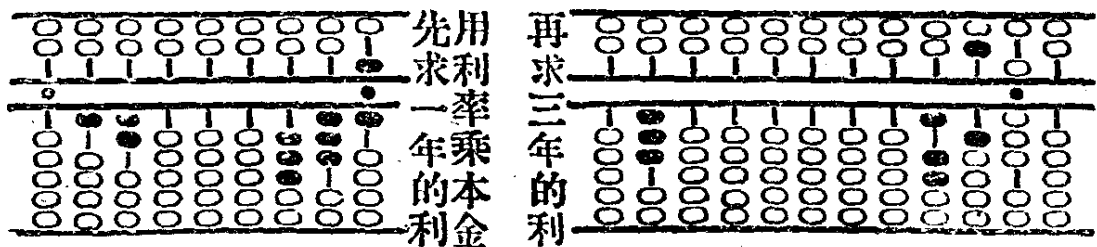 用利率乘本金
先求一年的利
再求三年的利